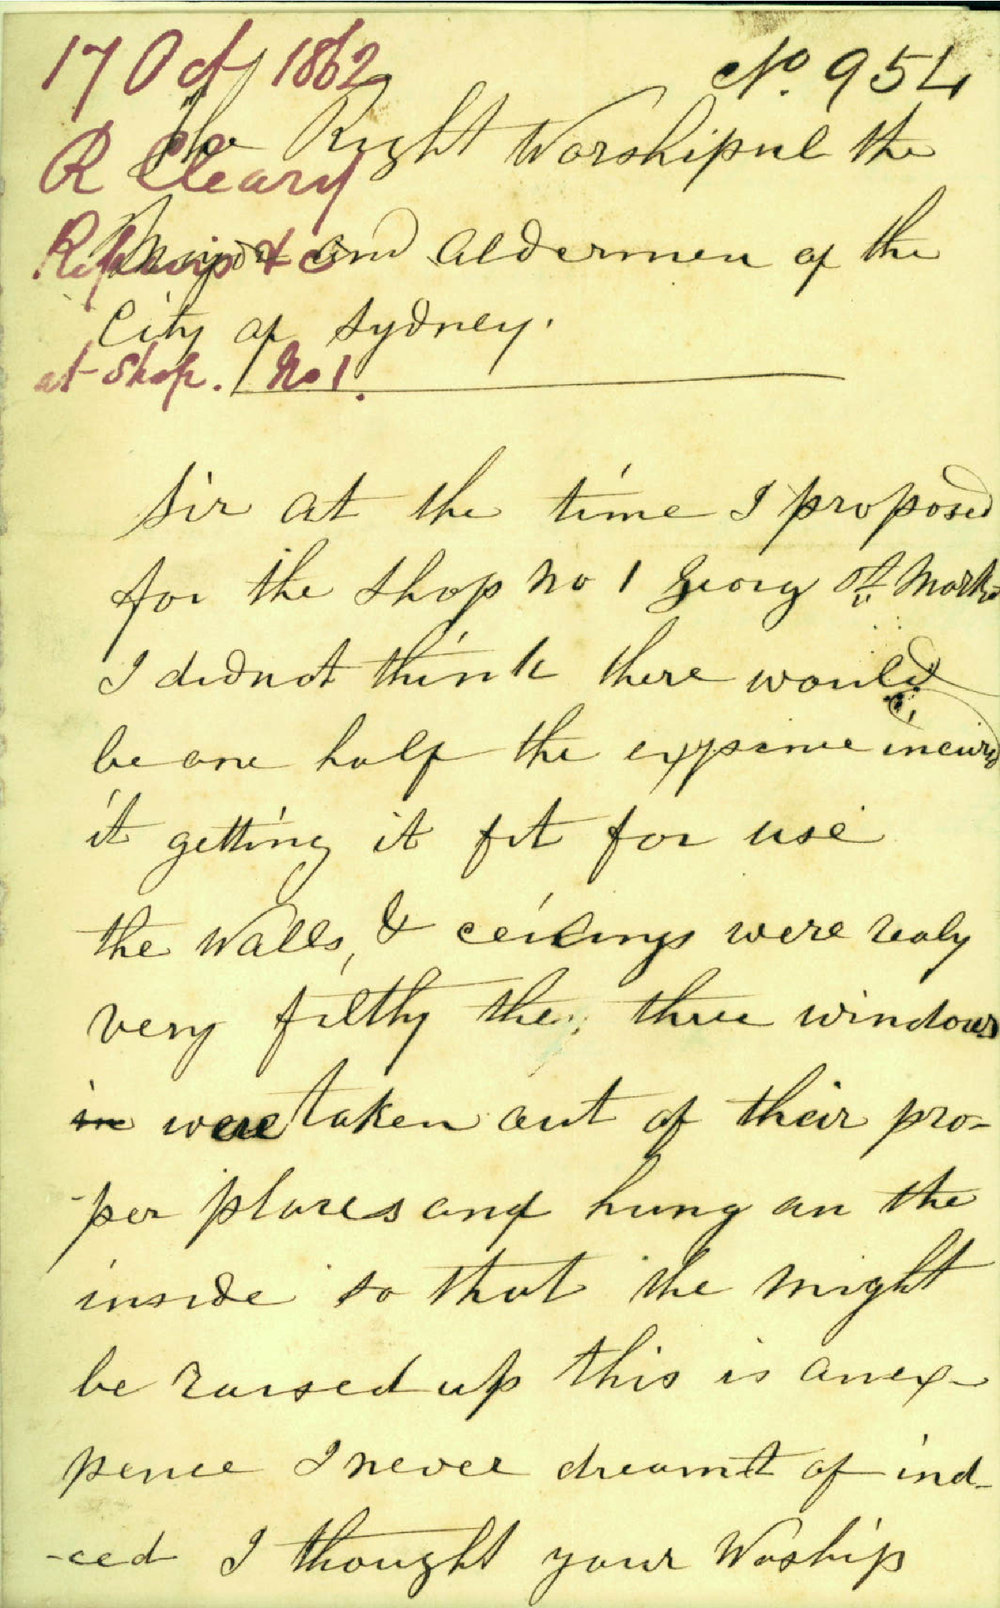 17 Oct 1862
No. 954
R Cleary
Repairs &c
at Shop. No 1.
The Right Worshipul the
Mayor and Aldermen of the
City of Sydney.
Sir at the time I proposed
for the shop No 1 Georg St Mark
I did not think there would
be one half the expence incurd
it getting it fit for use
the Walls, & ceilings were realy
very filthy the three windows
in were taken out of their pro-
-per plases and hung on the
inside so that the might
be raised up this is an ex-
pence I never dreamt of ind-
-eed I thought your Woship